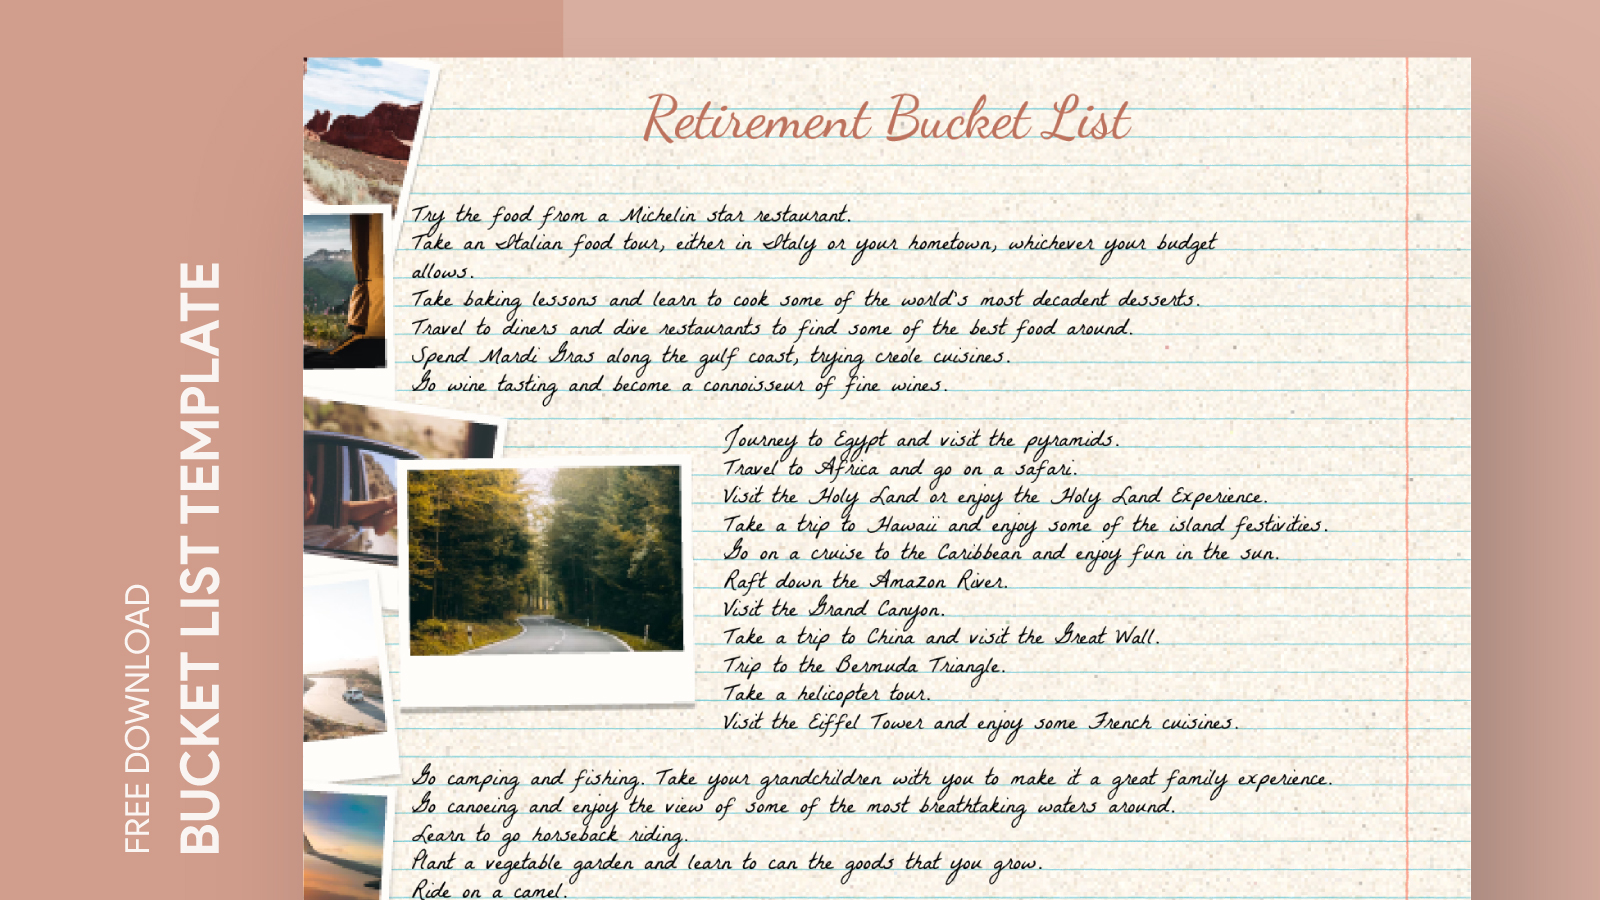 FREE DOWNLOAD
BUCKET LIST TEMPLATE
Retirement Bucket List
Try the food from a Michelin star restaurant.
Take an Italian food tour, either in Italy or your hometown, whichever your budget
allows.
Take baking lessons and learn to cook some of the world's most decadent desserts.
Travel to diners and dive restaurants to find some of the best food around.
Spend Mardi Gras along the gulf coast, trying creole cuisines.
Go wine tasting and become a connoisseur of fine wines.
Journey to Egypt and visit the pyramids.
Travel to Africa and go on a safari.
Visit the Holy Land or enjoy the Holy Land Experience.
Take a trip to Hawaii and enjoy some of the island festivities.
Go on a cruise to the Caribbean and enjoy fun in the sun.
Raft down the Amazon River.
Visit the Grand Canyon.
Take a trip to China and visit the Great Wall.
Trip to the Bermuda Triangle.
Take a helicopter tour.
Visit the Eiffel Tower and enjoy some French cuisines.
Go camping and fishing. Take your grandchildren with you to make it a great family experience.
Go canoeing and enjoy the view of some of the most breathtaking waters around.
Learn to go horseback riding.
Plant a vegetable garden and learn to can the goods that you grow.
Ride on a camel.